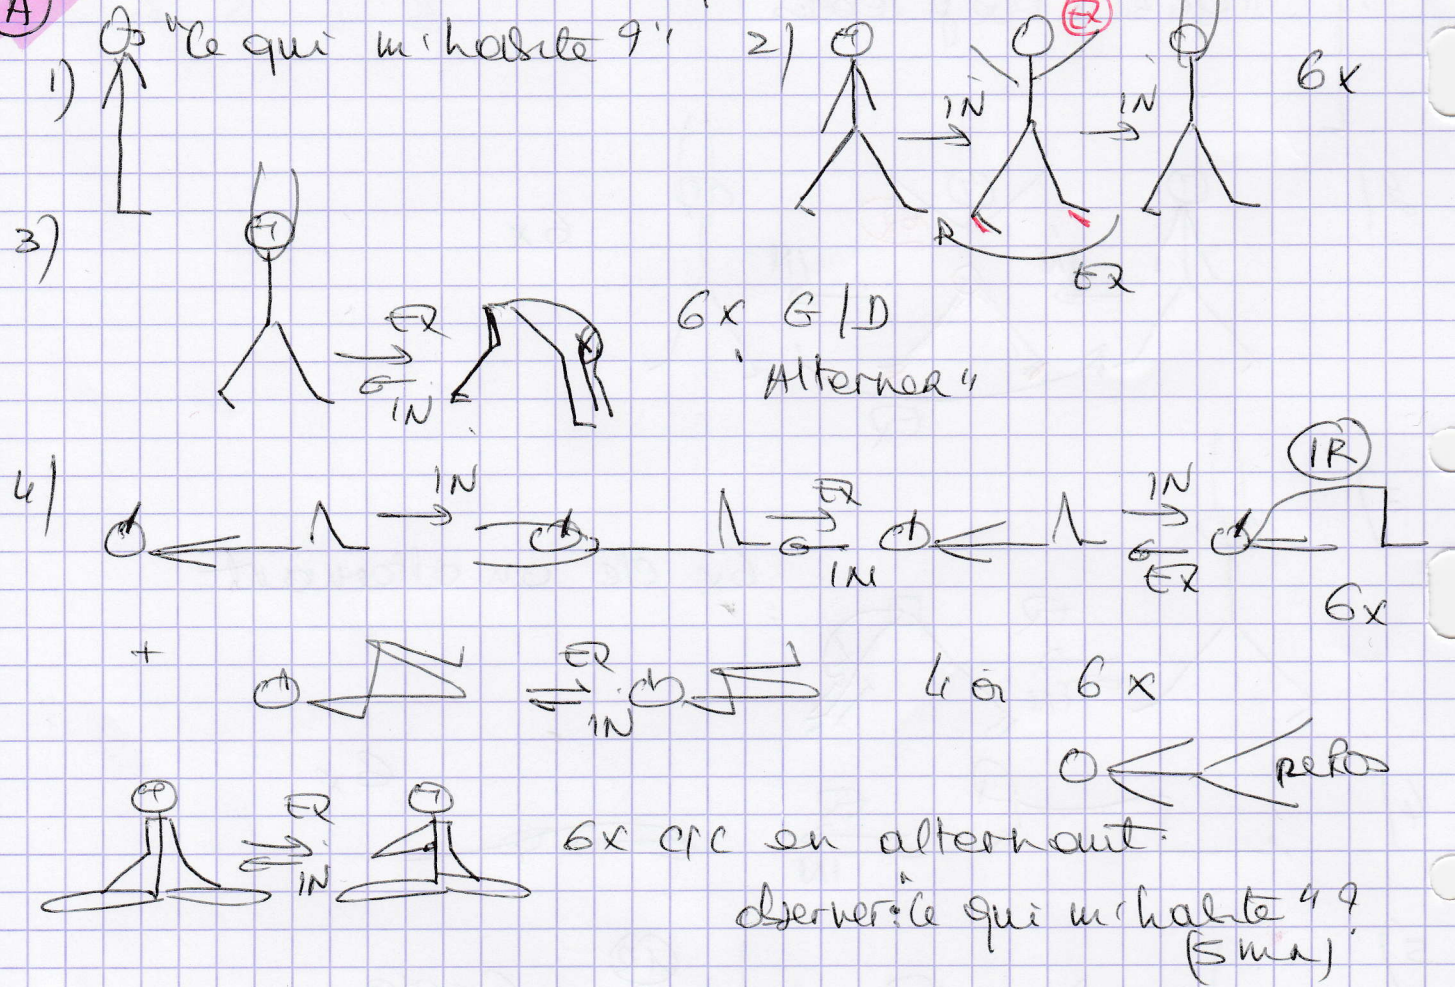 A)
1) "Ce qui m'habite ?"
2) IN EX IN 6x
R EX
3) EX IN 6x G/D
"Alterner"
4) IN EX IN IN EX IR
6x
+ EX IN 4 à 6x
REPOS
EX IN 6x c/c en alternant.
observer : "Ce qui m'habite" ?
(5 mn)